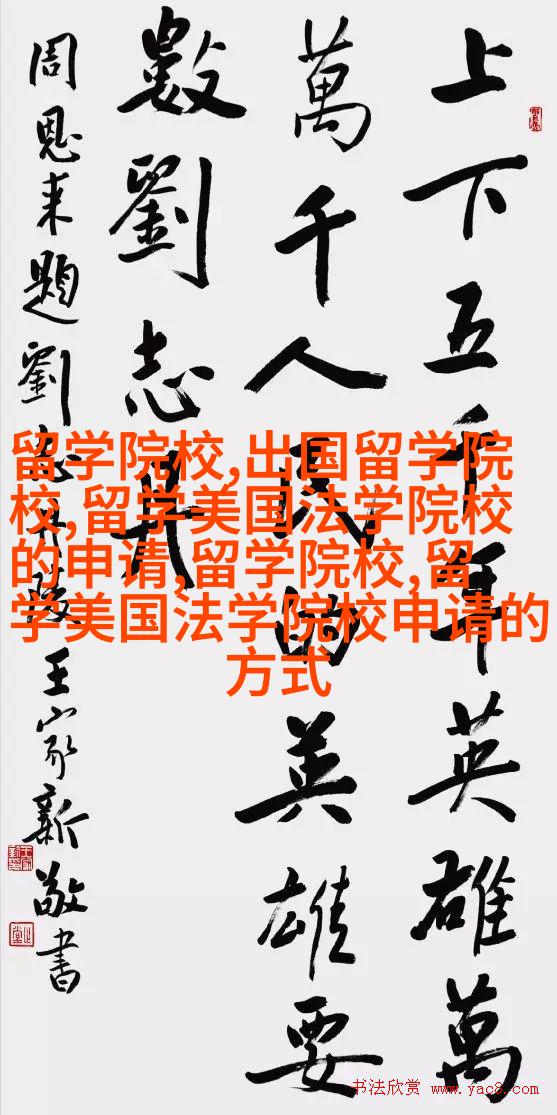 上下五千年英雄萬
萬千人民的英雄要
數劉志丹
周恩来題劉志丹陵王家新敬書
留学院校,出国留学院
校,留学美国法学院校
的申请,留学院校,留
学美国法学院校申请的
方式
书法欣赏 www.yac8.com